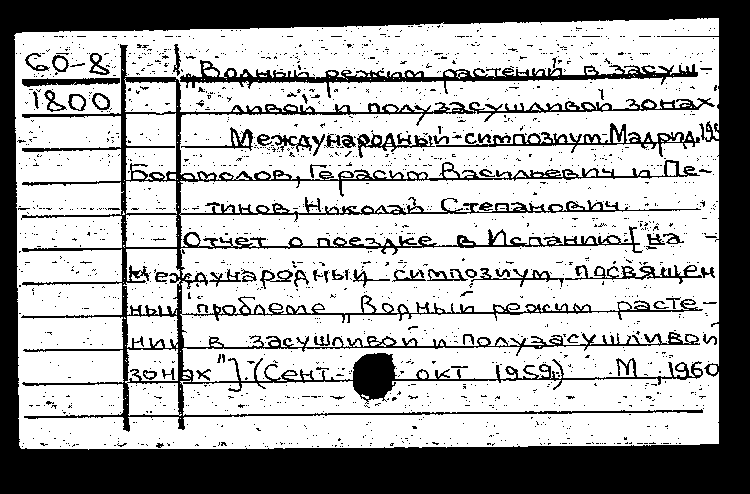 60-8
1800
„Водный режим растений в засуш-
ливой и полузасушливой зонах"
Международный симпозиум. Мадрид, 195
Богомолов, Герасим Васильевич и Пе-
тинов, Николай Степанович.
Отчет о поездке в Испанию. [на
международный симпозиум, посвящен
ный проблеме „Водный режим расте-
ний в засушливой и полузасушливой
зонах"]. (Сент.- окт 1959.) М., 1960